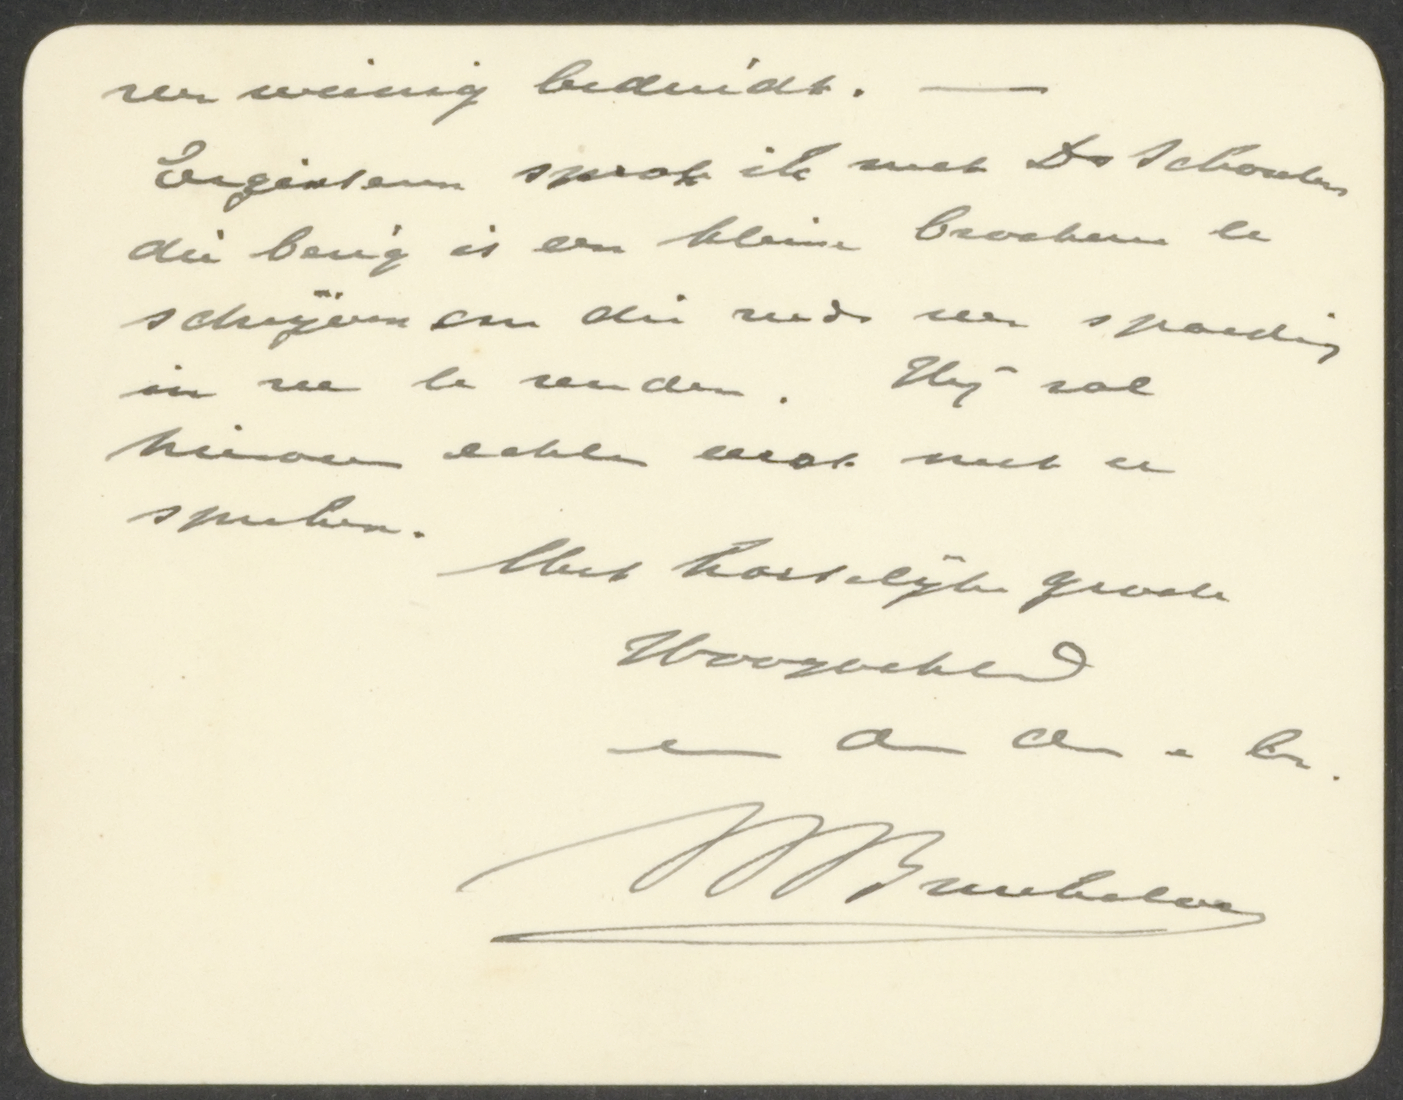 zeer weinig beduidt. —
Eergisteren sprak ik met Ds Schouten
die bezig is een kleine brochure te
schrijven om die reeds zeer spoedig
in zee te zenden. Hij zal
hierover echter eerst met u
spreken.
Met hartelijke groete
Hoogachtend
en